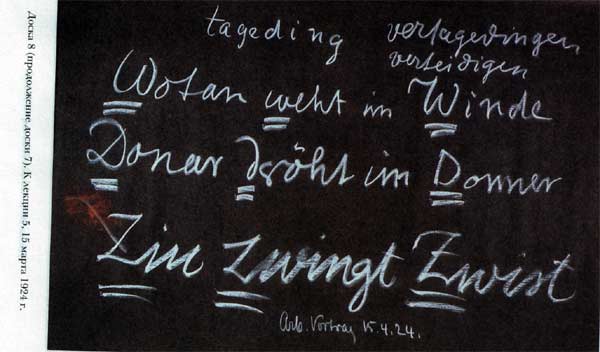 Доска 8 (продолжение доски 7). К лекции 5, 15 марта 1924 г.
tageding vertagedingen
verteidigen
Wotan weht im Winde
Donar dröht im Donner
Ziu zwingt Zwist
Arb. Vortrag 15.4.24.